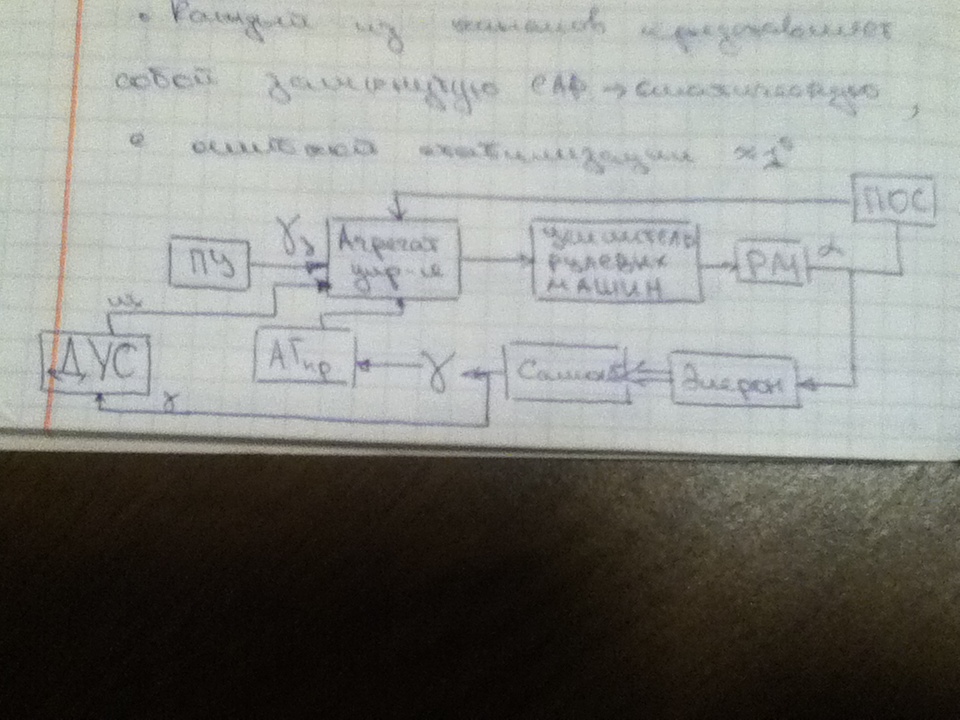 • Каждый из каналов представляет
собой замкнутую САР → статическую,
• ошибкой стабилизации ≈ 1°
ПОС
ПУ
γз
Агрегат
упр-ле
усилитель
рулевых
машин
РМ
α
ДУС
АГир
γ
Самол
Элерон
γ